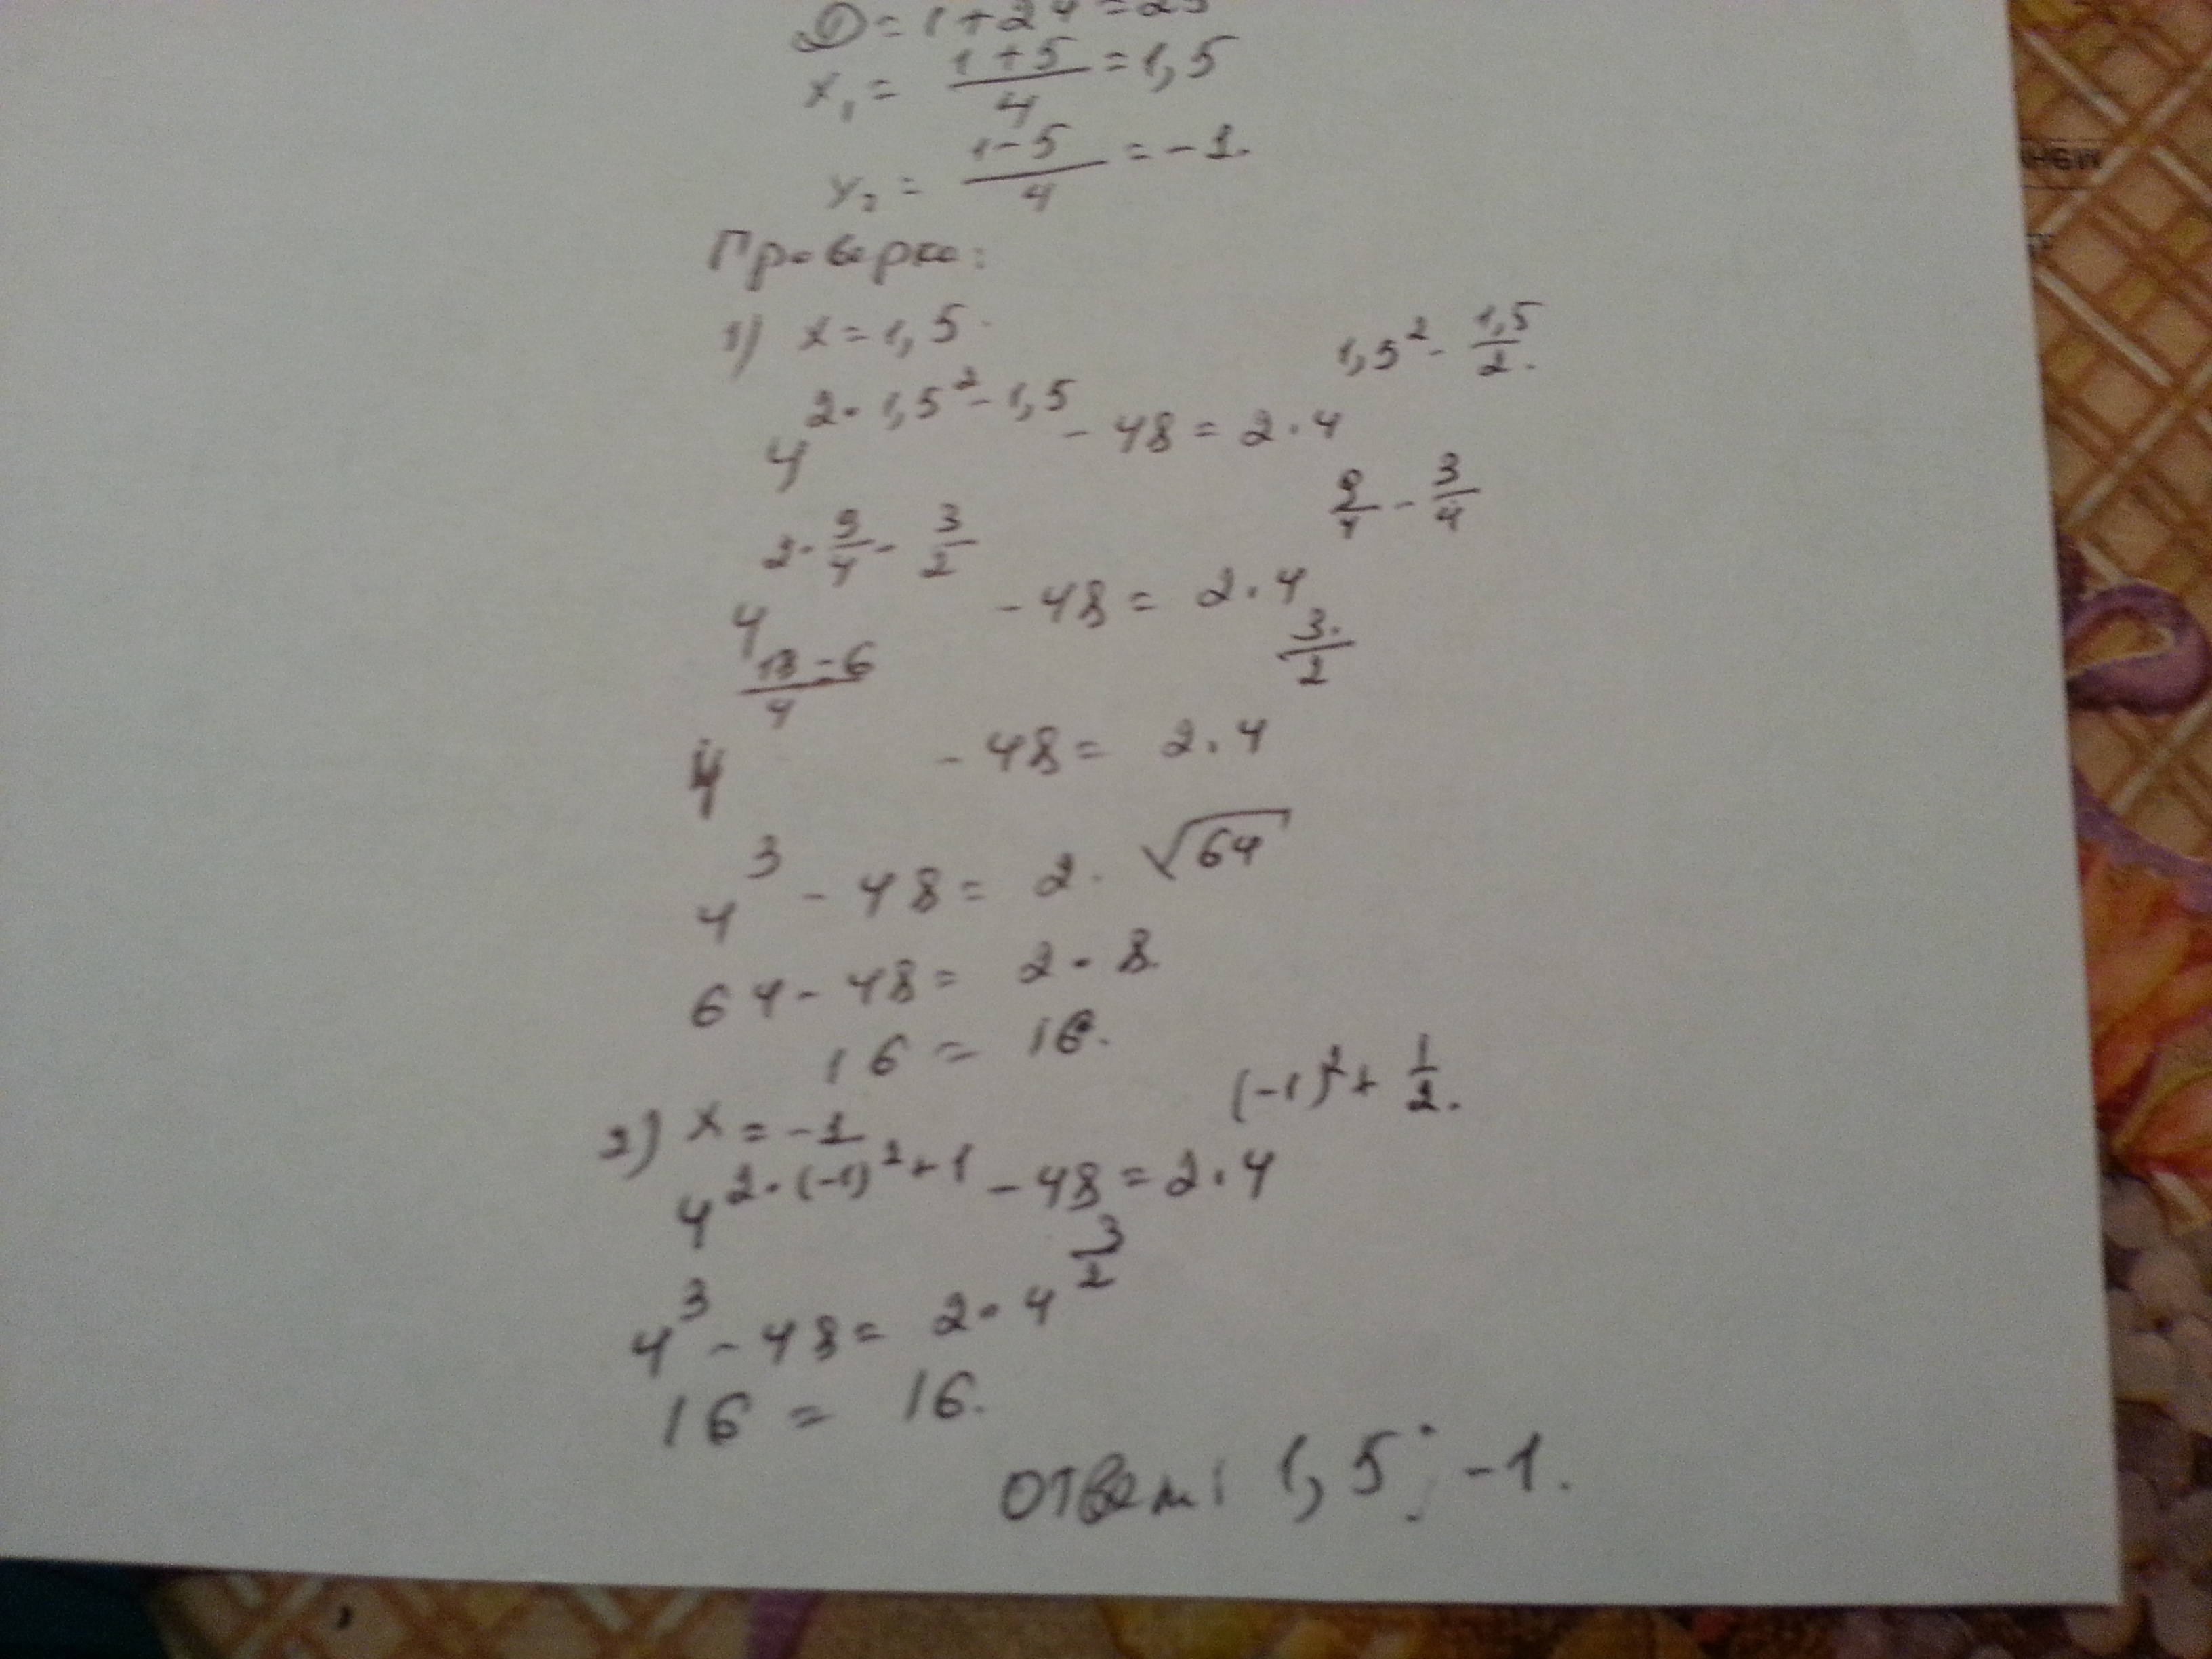 D = 1 + 24 = 25
x₁ = (1+5)/4 = 1,5
x₂ = (1-5)/4 = -1.
Проверка:
1) x = 1,5.
4^(2·1,5² - 1,5) - 48 = 2·4^(1,5² - 1,5/2).
4^(2·9/4 - 3/2) - 48 = 2·4^(9/4 - 3/4)
4^((18-6)/4) - 48 = 2·4^(3/2)
4³ - 48 = 2·√64
64 - 48 = 2·8.
16 = 16.
2) x = -1
4^(2·(-1)²+1) - 48 = 2·4^((-1)²+1/2).
4³ - 48 = 2·4^(3/2)
16 = 16.
Ответ: 1,5; -1.